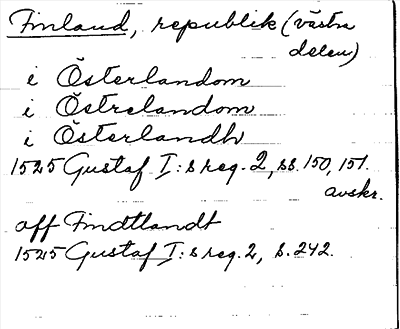 Finland, republik (västra
delen)
i Österlandom
i Östrelandom
i Österlandh
1525 Gustaf I:s reg. 2, ss. 150, 151.
avskr.
aff Findtlandt
1525 Gustaf I:s reg. 2, s. 242.